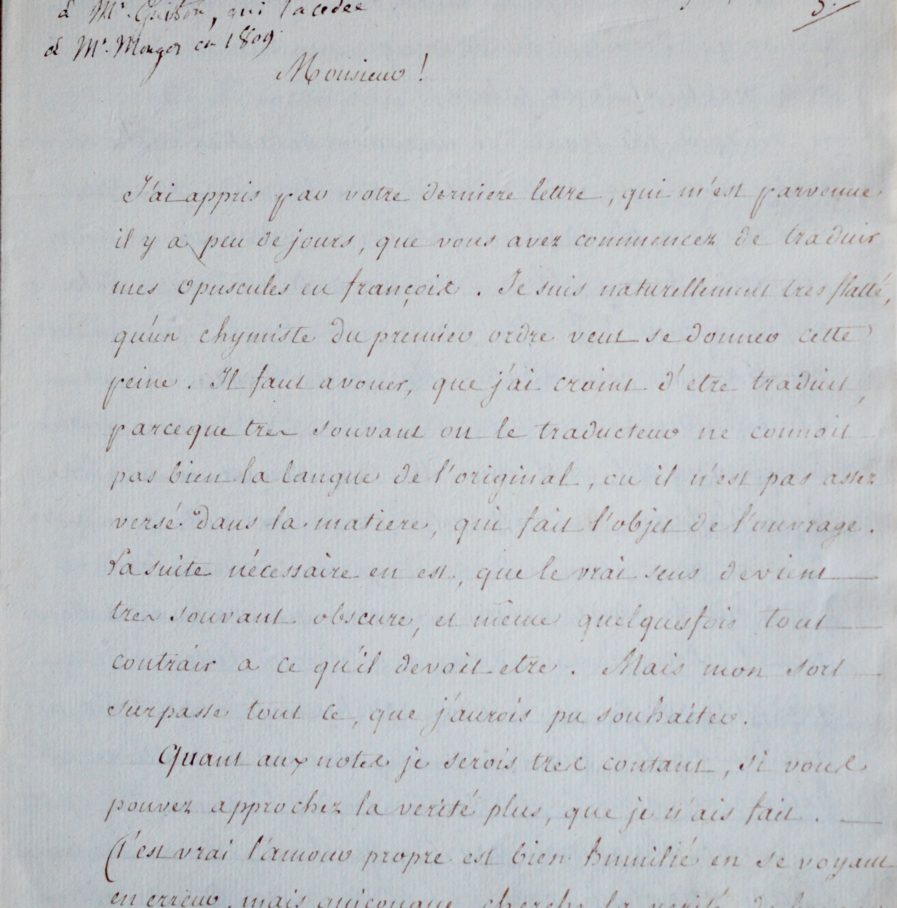 à Mr. Guiton, qui l'a cédée
à Mr. Monger en 1809.
Monsieur !
J'ai appris par votre derniere lettre, qui m'est parvenue
il y a peu de jours, que vous avez commencez de traduir
mes opuscules en françois. Je suis naturellement tres flatté,
qu'un chymiste du premier ordre veut se donner cette
peine. Il faut avouer, que j'ai craint d'etre traduit,
parceque tres souvant ou le traducteur ne connoit
pas bien la langue de l'original, ou il n'est pas assez
versé dans la matiere, qui fait l'objet de l'ouvrage.
La suite nécessaire en est, que le vrai sens devient
tres souvant obscure, et même quelquesfois tout
contrair a ce qu'il devoit etre. Mais mon sort
surpasse tout ce, que j'aurois pu souhaiter.
Quant aux notes je serois tres contant, si vous
pouvez approchez la verité plus, que je n'ais fait.
C'est vrai l'amour propre est bien humilié en se voyant
en erreur, mais quiconque cherche la verité